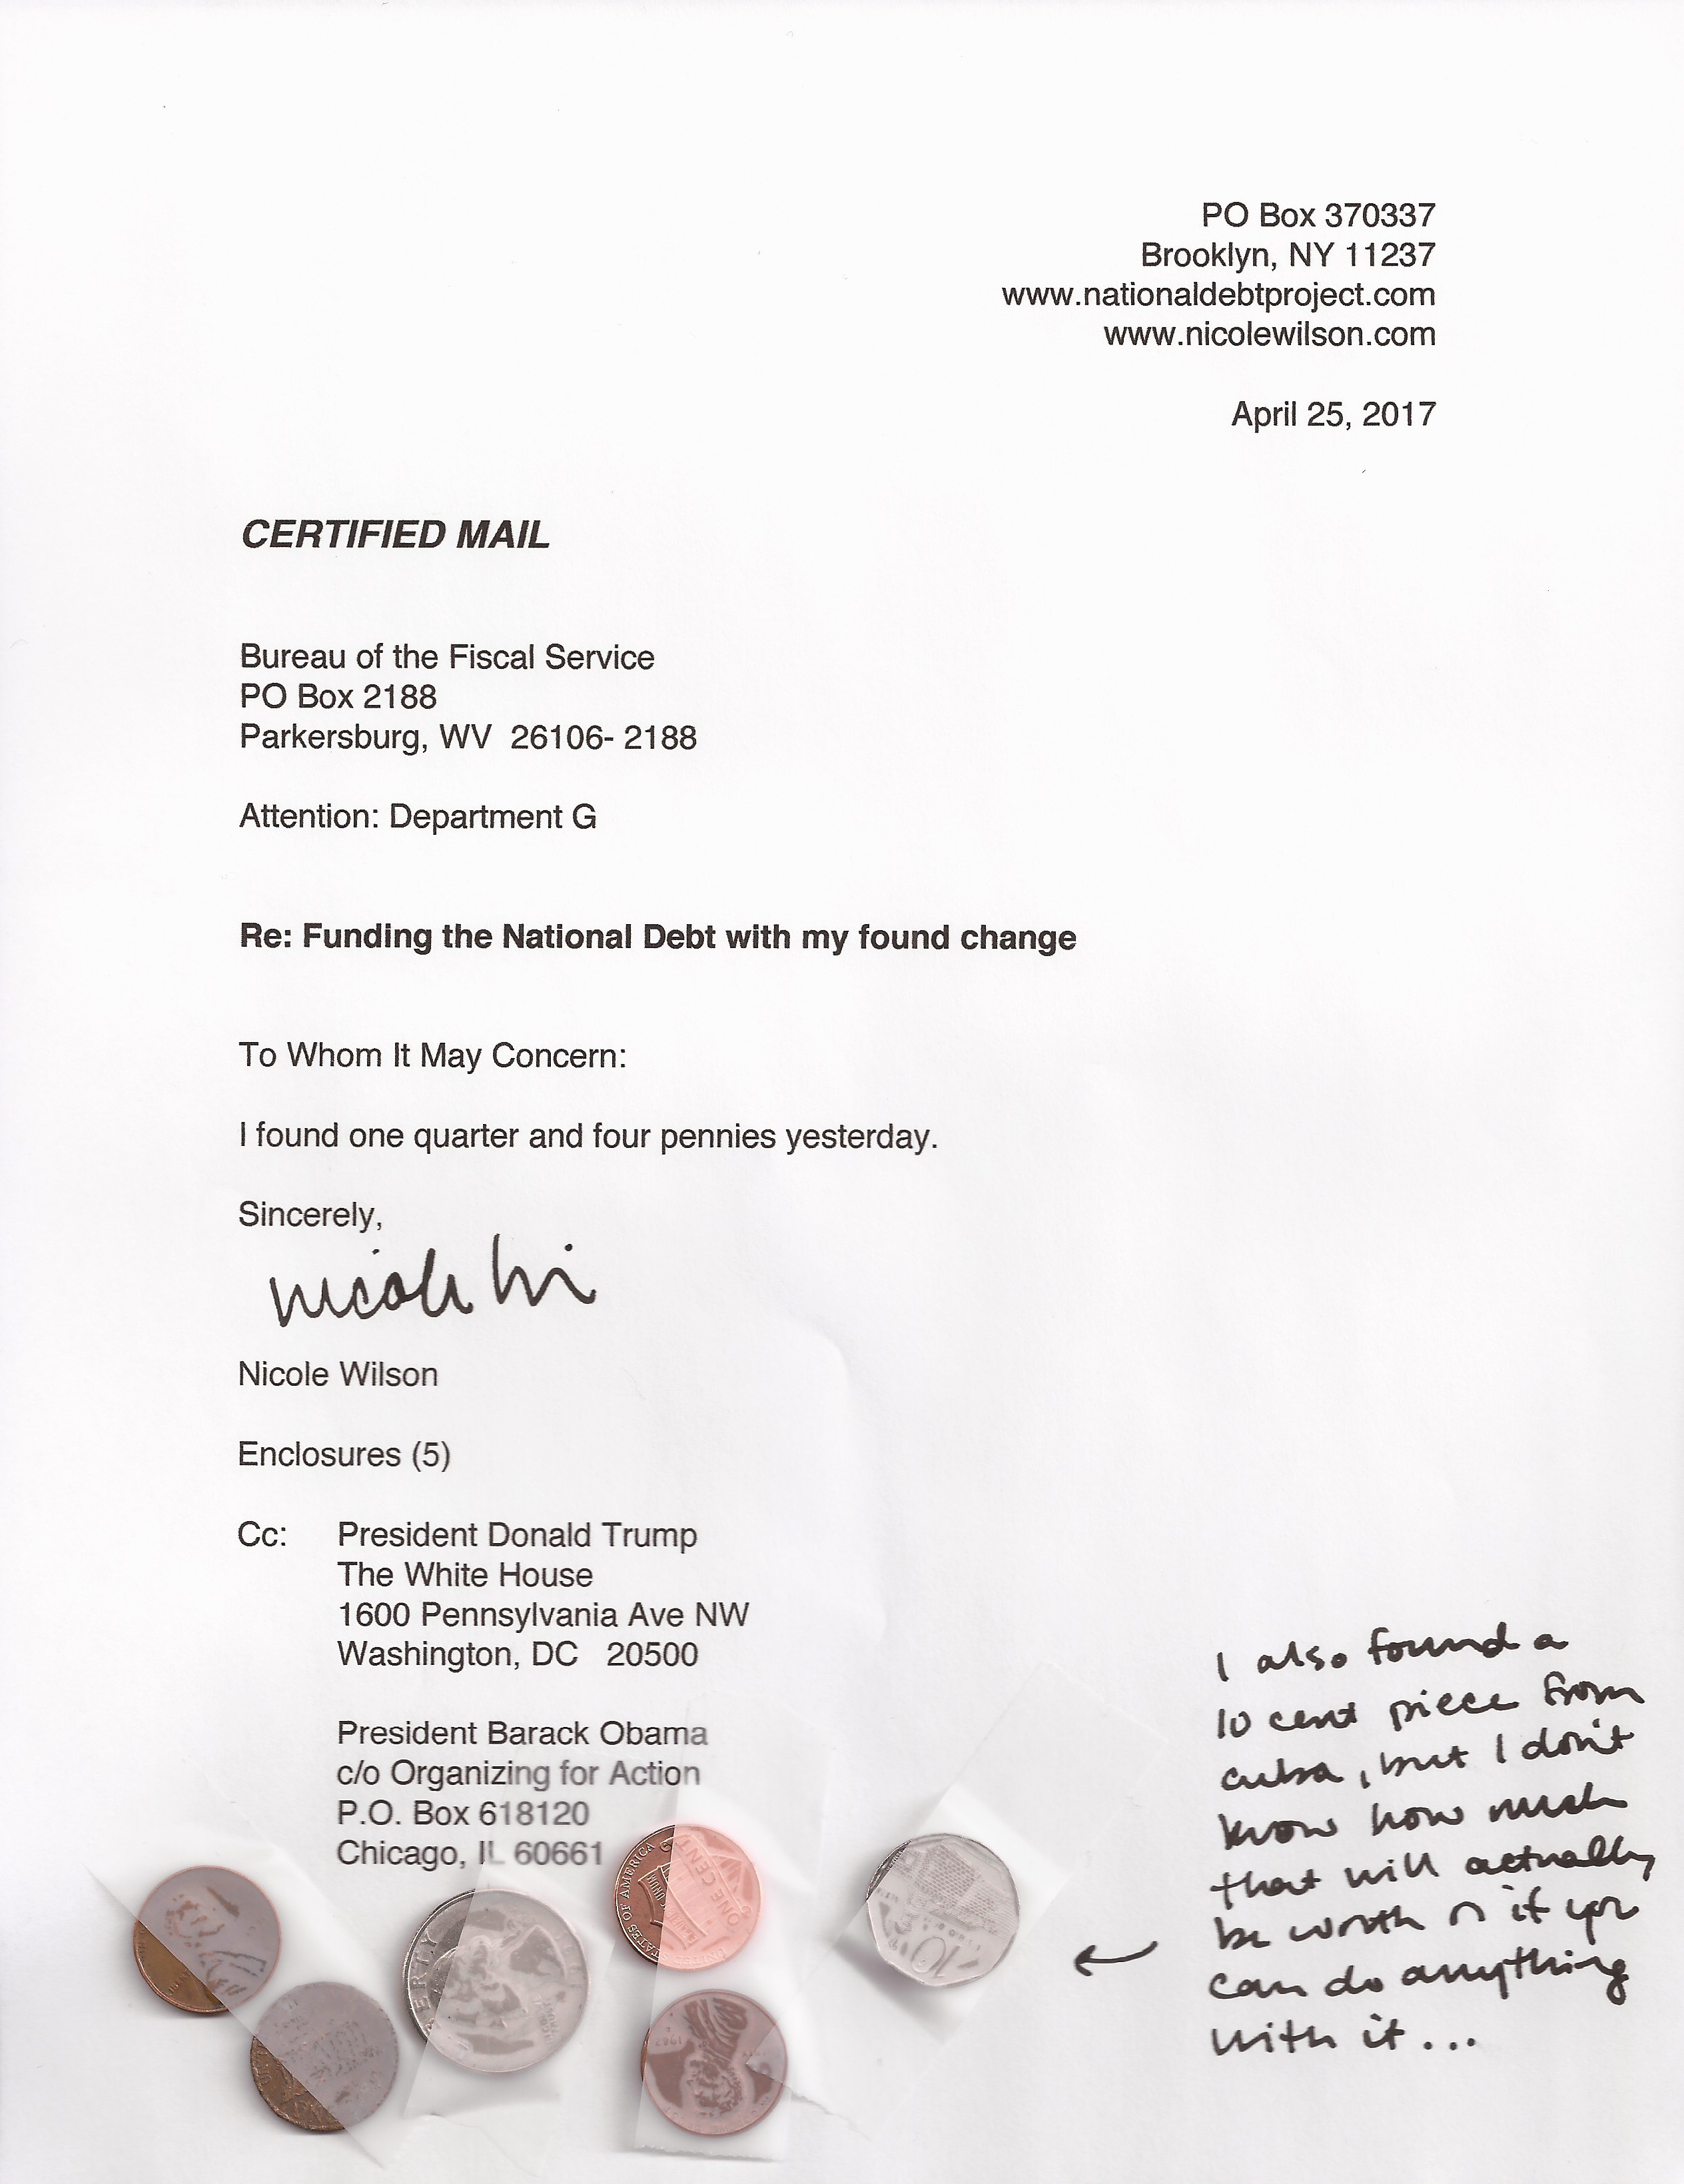 PO Box 370337
Brooklyn, NY 11237
www.nationaldebtproject.com
www.nicolewilson.com
April 25, 2017
CERTIFIED MAIL
Bureau of the Fiscal Service
PO Box 2188
Parkersburg, WV  26106- 2188
Attention: Department G
Re: Funding the National Debt with my found change
To Whom It May Concern:
I found one quarter and four pennies yesterday.
Sincerely,
Nicole Wilson
Enclosures (5)
Cc: President Donald Trump
The White House
1600 Pennsylvania Ave NW
Washington, DC  20500
President Barack Obama
c/o Organizing for Action
P.O. Box 618120
Chicago, IL 60661
I also found a
10 cent piece from
cuba, but I don't
know how much
that will actually
be worth or if you
can do anything
with it...
STATES OF AMERICA
ONE CENT
ERTY
10